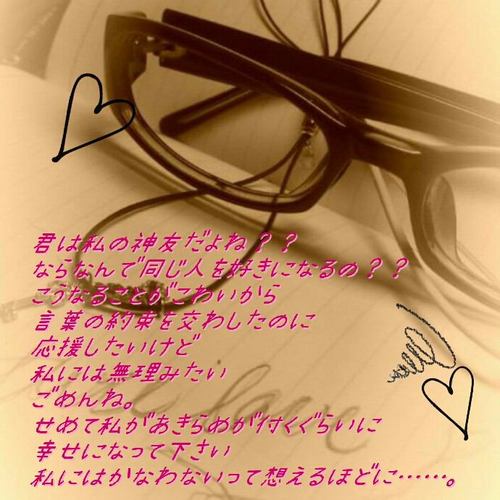 君は私の神友だよね？？
ならなんで同じ人を好きになるの？？
こうなることがこわいから
言葉の約束を交わしたのに
応援したいけど
私には無理みたい
ごめんね。
せめて私があきらめが付くぐらいに
幸せになって下さい
私にはかなわないって想えるほどに……。